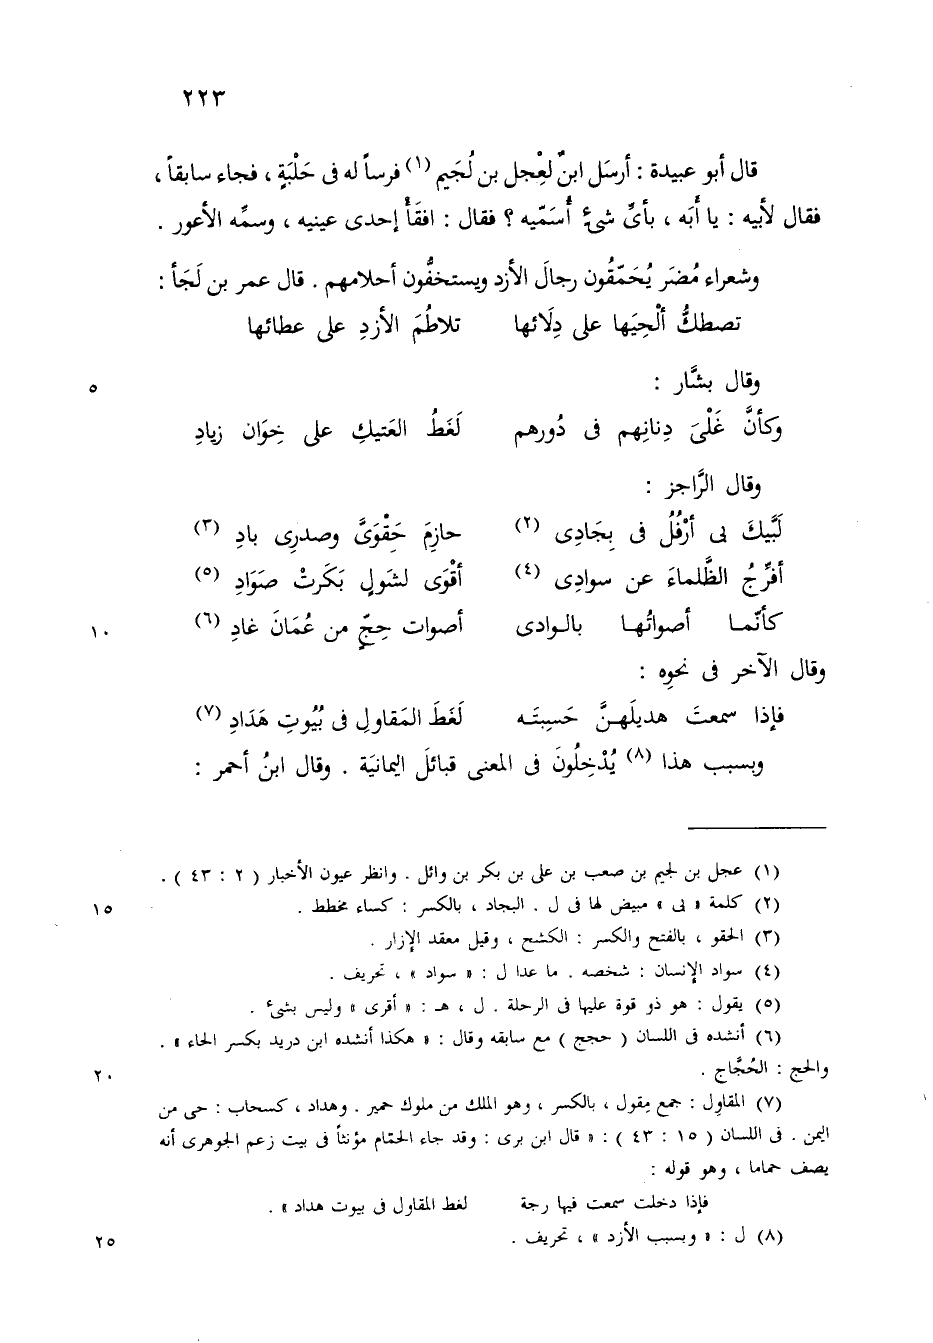 ٢٢٣
قال أبو عبيدة : أرسَل ابنٌ لعِجل بن لُجَيم (١) فرساً له فى حَلْبَةٍ ، فجاء سابقاً ،
فقال لأبيه : يا أبَه ، بأىِّ شىءٍ أُسَمّيه ؟ فقال : افقَأْ إحدى عينيه ، وسمِّه الأعور .
وشعراء مُضَر يُحَمّقُون رجالَ الأزد ويستخفُّون أحلامهم . قال عمر بن لَجَأ :
تصطكُّ ألْحِيَها على دِلَائها تلاطُمَ الأزدِ على عطائها
وقال بشَّار :
٥
وكأنَّ غَلْىَ دِنانِهم فى دُورهم لَغَطُ العَتيكِ على خِوَان زيادِ
وقال الرَّاجز :
لَبَّيكَ بى أرْفُلُ فى بِجَادِى (٢) حازِمَ حَِقْوَىَّ وصدرِى بادِ (٣)
أفرِّجُ الظَّلماءَ عن سوادِى (٤) أقْوَى لشَولٍ بَكَرتْ صَوَادِ (٥)
كأنّمـا أصواتُهـا بالـوادى أصوات حِجّ من عُمَانَ غادِ (٦)
١٠
وقال الآخر فى نحوِه :
فإذا سمعتَ هديلَهـنَّ حَسِبتَـه لَغَطَ المَقاوِلِ فى بُيُوتِ هَدَادِ (٧)
وبسبب هذا (٨) يُدْخِلُونَ فى المعنى قبائلَ اليمانيَة . وقال ابنُ أحمر :
(١) عجل بن لجيم بن صعب بن على بن بكر بن وائل . وانظر عيون الأخبار ( ٢ : ٤٣ ) .
(٢) كلمة « بى » مبيض لها فى ل . البجاد ، بالكسر : كساء مخطط .
١٥
(٣) الحقو ، بالفتح والكسر : الكشح ، وقيل معقد الإزار .
(٤) سواد الإنسان : شخصه . ما عدا ل : « سواد » ، تحريف .
(٥) يقول : هو ذو قوة عليها فى الرحلة . ل ، هـ : « أقرى » وليس بشىء .
(٦) أنشده فى اللسان ( حجج ) مع سابقه وقال : « هكذا أنشده ابن دريد بكسر الحاء » .
والحج : الحُجَّاج .
٢٠
(٧) المقاوِل : جمع مِقول ، بالكسر ، وهو الملك من ملوك حمير . وهداد ، كسحاب : حى من
اليمن . فى اللسان ( ١٥ : ٤٣ ) : « قال ابن برى : وقد جاء الحمّام مؤنثاً فى بيت زعم الجوهرى أنه
يصف حماما ، وهو قوله :
فإذا دخلت سمعت فيها رجة لغط المقاول فى بيوت هداد » .
(٨) ل : « وبسبب الأزد » ، تحريف .
٢٥